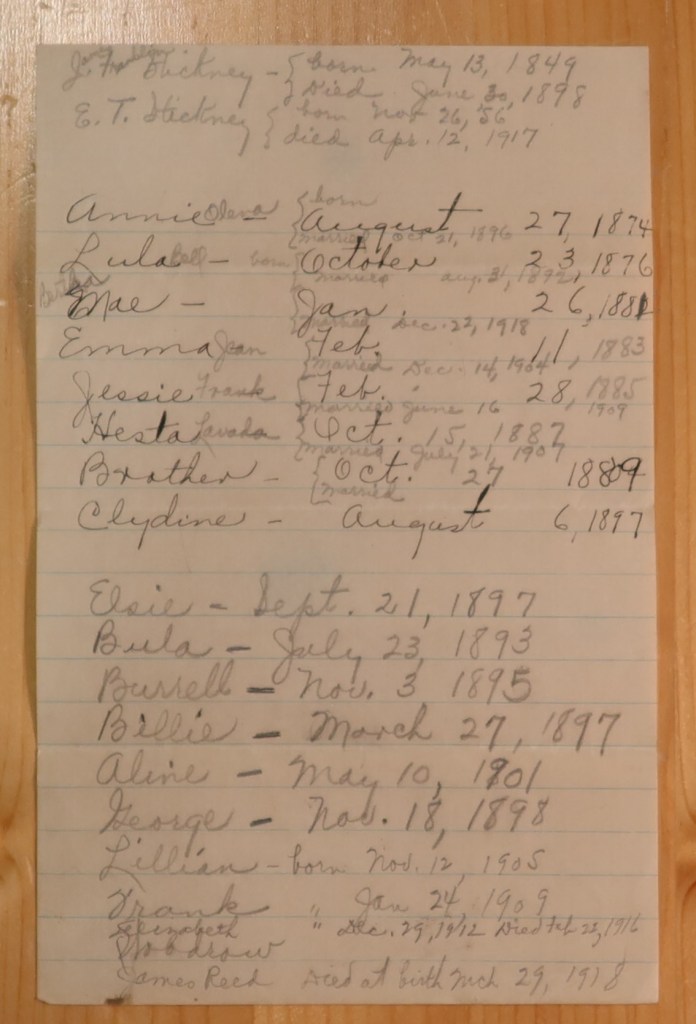 James Franklin
J. F. Stickney - { born May 13, 1849
} Died June 30, 1898
E. T. Stickney { born Nov 26, '56
{ died Apr. 12, 1917
{ born
Annie Olena - August 27, 1874
{ married Oct 21, 1896
Lula Bell - born { October 23, 1876
{ Married Aug. 31, 1892
Bertha
Mae - { Jan. 26, 1881
{ Married Dec. 22, 1918
Emma Jean { Feb. 11, 1883
{ Married Dec. 14, 1904
Jessie Frank { Feb. 28, 1885
{ married June 16 1909
Hesta Lavada { Oct. 15, 1887
{ Married July 21, 1907
Brother - { Oct. 27 1889
{ Married
Clydine - August 6, 1897
Elsie - Sept. 21, 1897
Bula - July 23, 1893
Burrell - Nov. 3 1895
Billie - March 27, 1897
Aline - May 10, 1901
George - Nov. 18, 1898
Lillian - born Nov. 12, 1905
Frank " Jan 24, 1909
Elizabeth " Dec. 29, 1912 Died Feb 22, 1916
Woodrow
James Reed Died at birth Mch 29, 1918